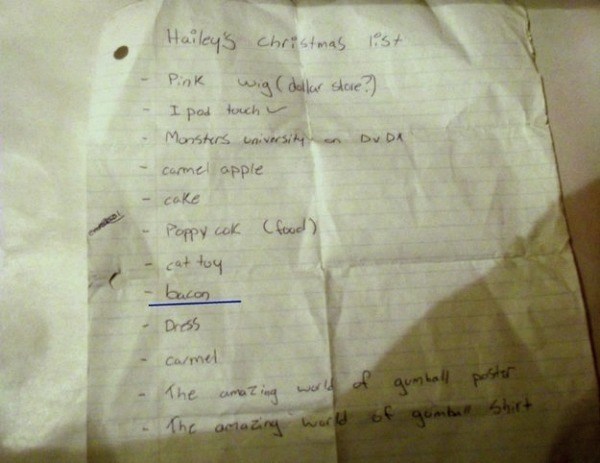 Hailey's christmas list
- Pink wig (dollar store?)
- I pod touch ✓
- Monsters university on DVD
- carmel apple
- cake
- Poppy cak (food)
- cat toy
- bacon
- Dress
- carmel
- The amazing world of gumball poster
- The amazing world of gumball shirt